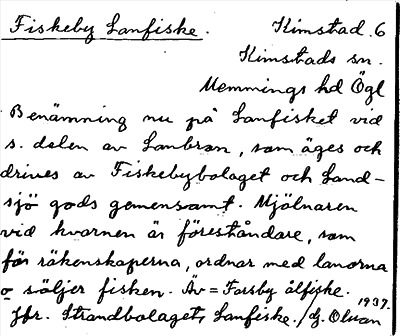 Fiskeby Lanfiske. Kimstad. 6
Kimstads sn.
Memmings hd Ögl
Benämning nu på Lanfisket vid
s. delen av Lanbron, som äges och
drives av Fiskebybolaget och Land-
sjö gods gemensamt. Mjölnaren
vid kvarnen är föreståndare, som
för räkenskaperna, ordnar med lanorna
o säljer fisken. Äv = Forsby ålfiske.
Jfr. Strandbolagets Lanfiske. / G. Olson 1937.